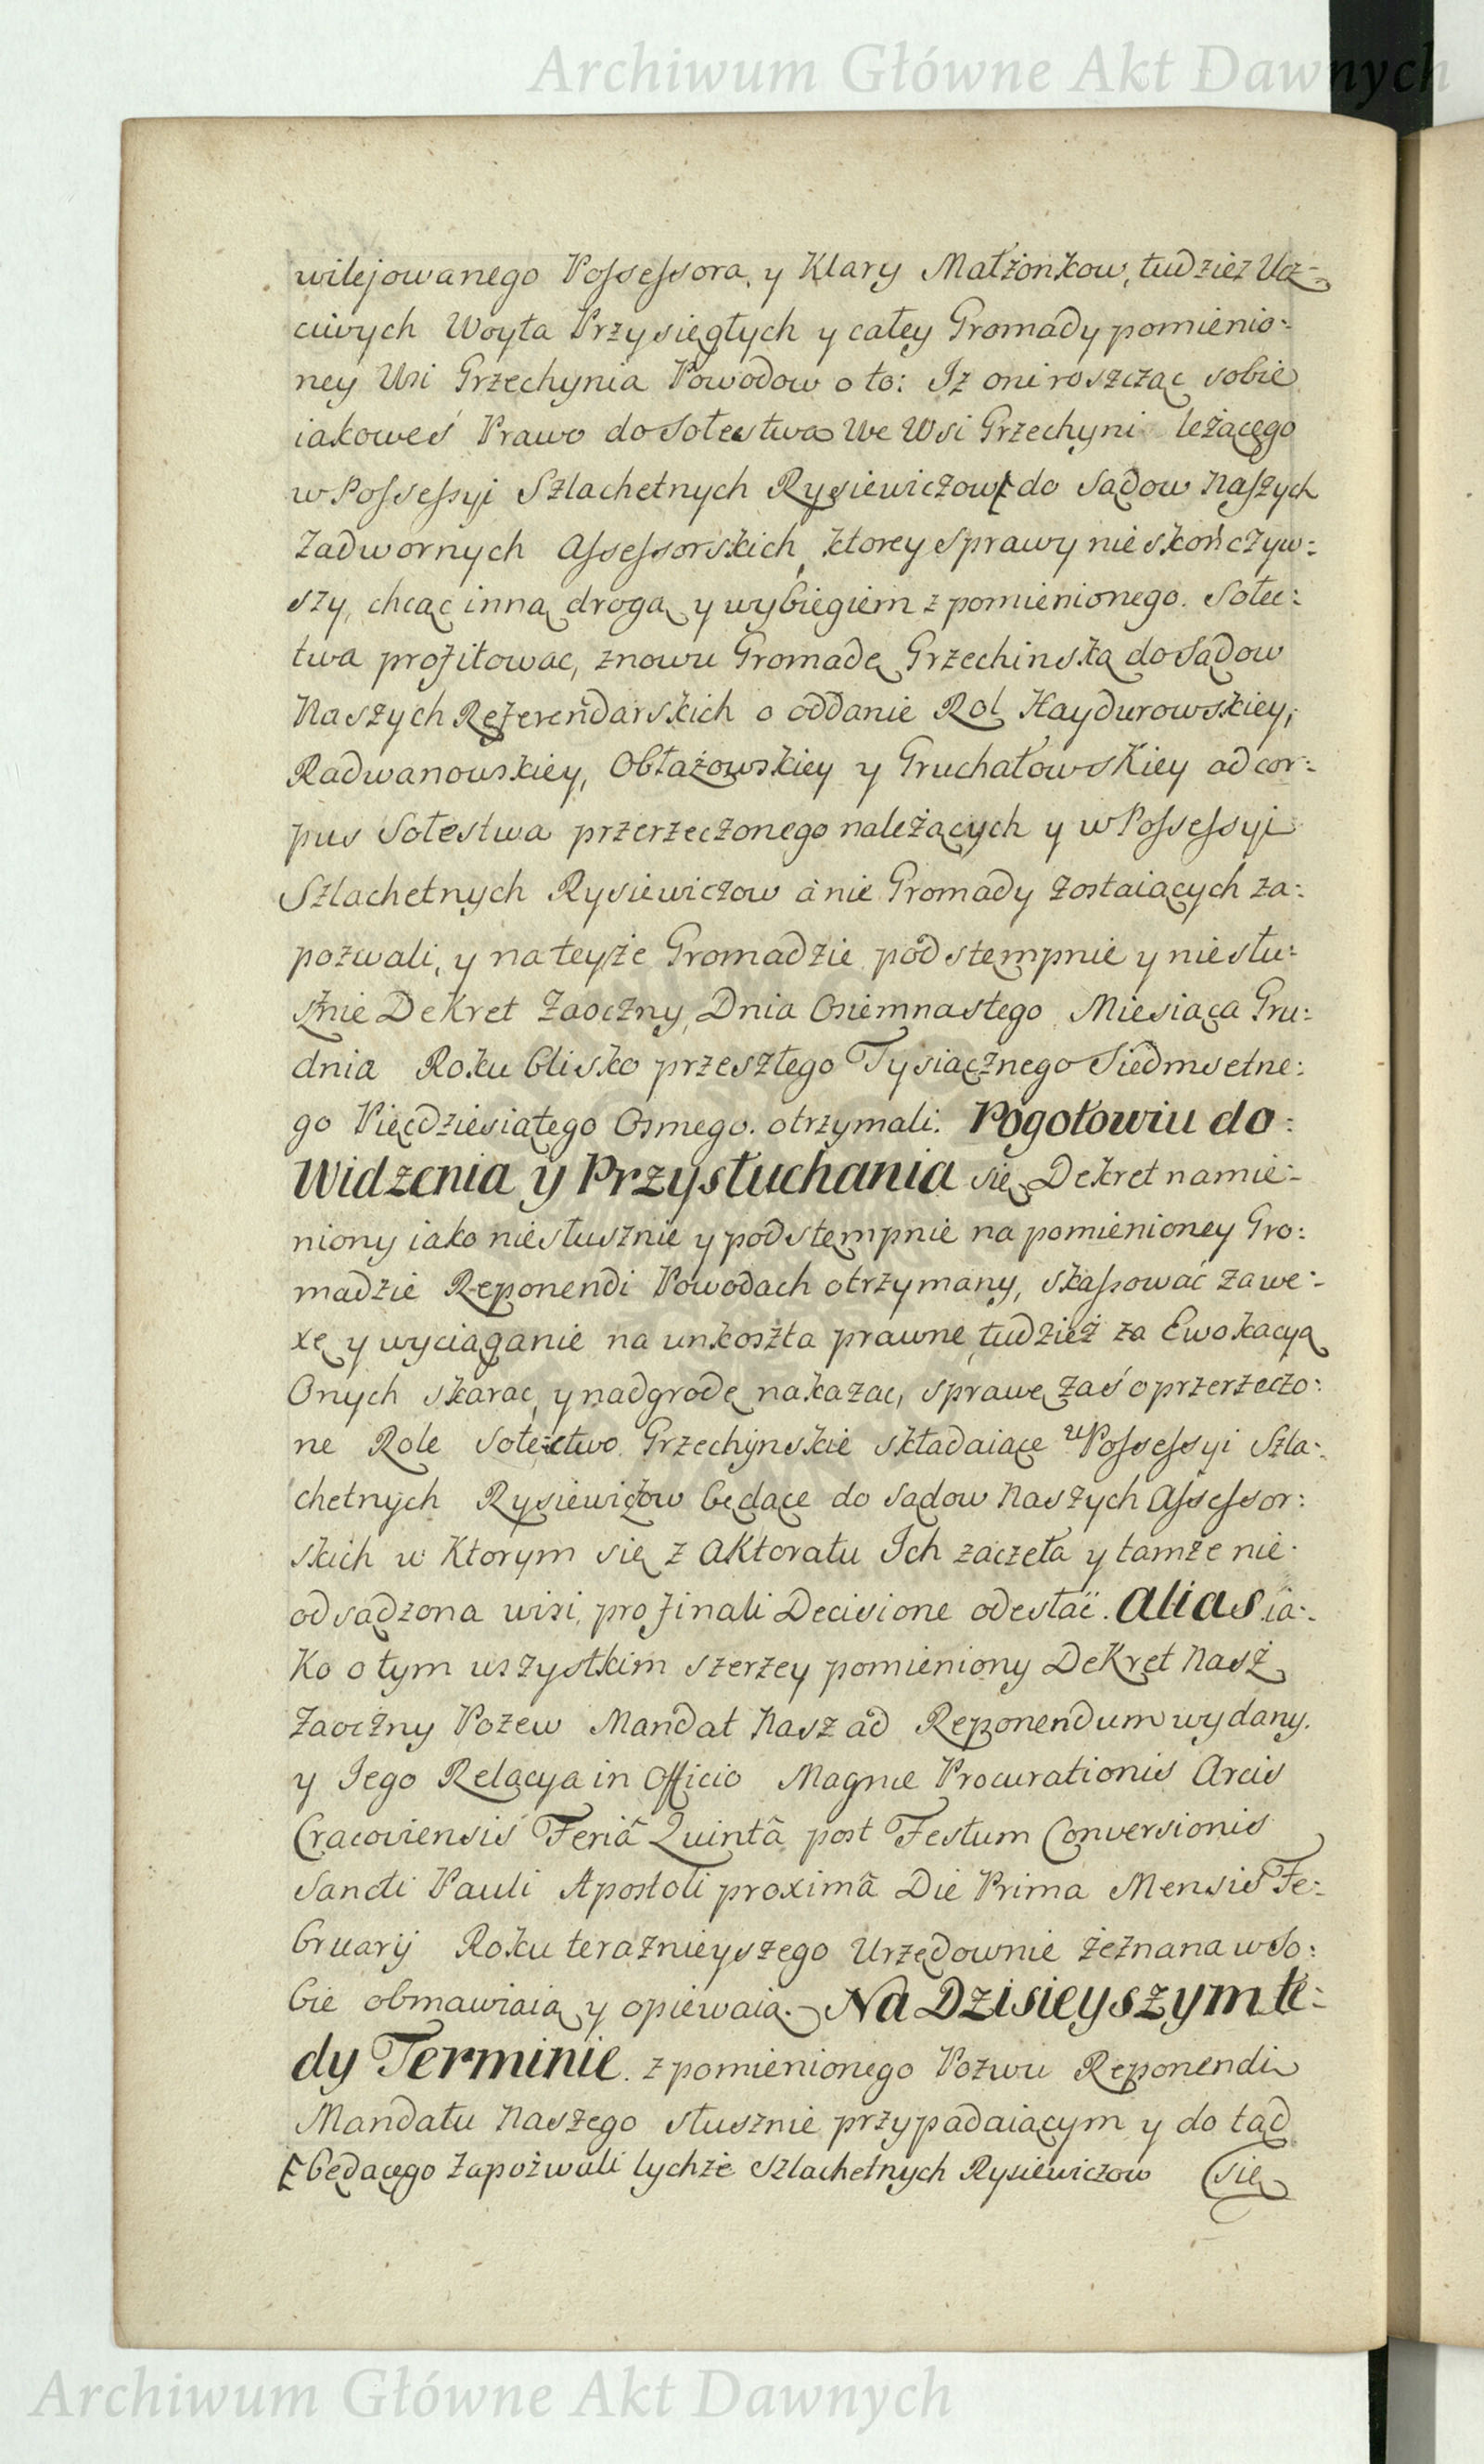 Archiwum Główne Akt Dawnych
wilejowanego Possessora, y Klary Małżonkow, tudzież Ucz-
ciwych Woyta Przysięgłych y całey Gromady pomienio:
ney Wsi Grzechynia Powodow o to: Iż oni roszcząc sobie
iakoweś Prawo do Sołestwa We Wsi Grzechyni leżącego
w Possessyi Szlachetnych Rysiewiczow [ do Sądow Naszych
Zadwornych Assessorskich, ktorey sprawy nieskończyw:
szy, chcąc inną drogą y wybiegiem z pomienionego. Sołec:
twa profitować, znowu Gromadę Grzechinską do Sądow
Naszych Referendarskich o oddanie Rol Haydurowskiey,
Radwanowskiey, Obłażowskiey y Gruchałowskiey ad cor:
pus Sołestwa przerzeczonego należących y w Possessyi
Szlachetnych Rysiewiczow à nie Gromady zostaiących za:
pozwali, y na teyże Gromadzie podstempnie y niesłu:
sznie Dekret Zaoczny, Dnia Osiemnastego Miesiąca Gru:
dnia Roku blisko przeszłego Tysiącznego Siedmsetne:
go Pięcdziesiątego Osmego. otrzymali. Pogotowiu do:
Widzenia y Przysłuchania się Dekret namie:
niony iako niesłusznie y podstempnie na pomienioney Gro:
madzie Reponendi Powodach otrzymany, skassować za we:
xę y wyciąganie na unkoszta prawne, tudzież za Ewokacyą
Onych skarac, y nadgrodę nakazac, sprawę zaś o przerzeczo:
ne Role Sołectwo Grzechynskie składaiące w Possessyi Szla:
chetnych Rysiewiczow będące do Sądow Naszych Assessor:
skich w Ktorym się z Aktoratu Ich zaczeła y tamże nie
odsądzona wisi, pro finali Decisione odesłać. Alias ia:
Ko o tym wszystkim szerzey pomieniony DeKret Nasz
Zaoczny Pozew Mandat Nasz ad Reponendum wydany.
y Iego Relacya in Officio Magnæ Procurationis Arcis
Cracoviensis Feriâ Quintâ post Festum Conversionis
Sancti Pauli Apostoli proximâ Die Prima Mensis Fe:
bruarij Roku teraznieyszego Urzędownie zeznana w So:
bie obmawiaią y opiewaią. Na Dzisieyszym te:
dy Terminie. z pomienionego Pozwu Reponendi
Mandatu Naszego słusznie przypadaiącym y do tąd
[ będącego zapozwali tychże Szlachetnych Rysiewiczow się
Archiwum Główne Akt Dawnych